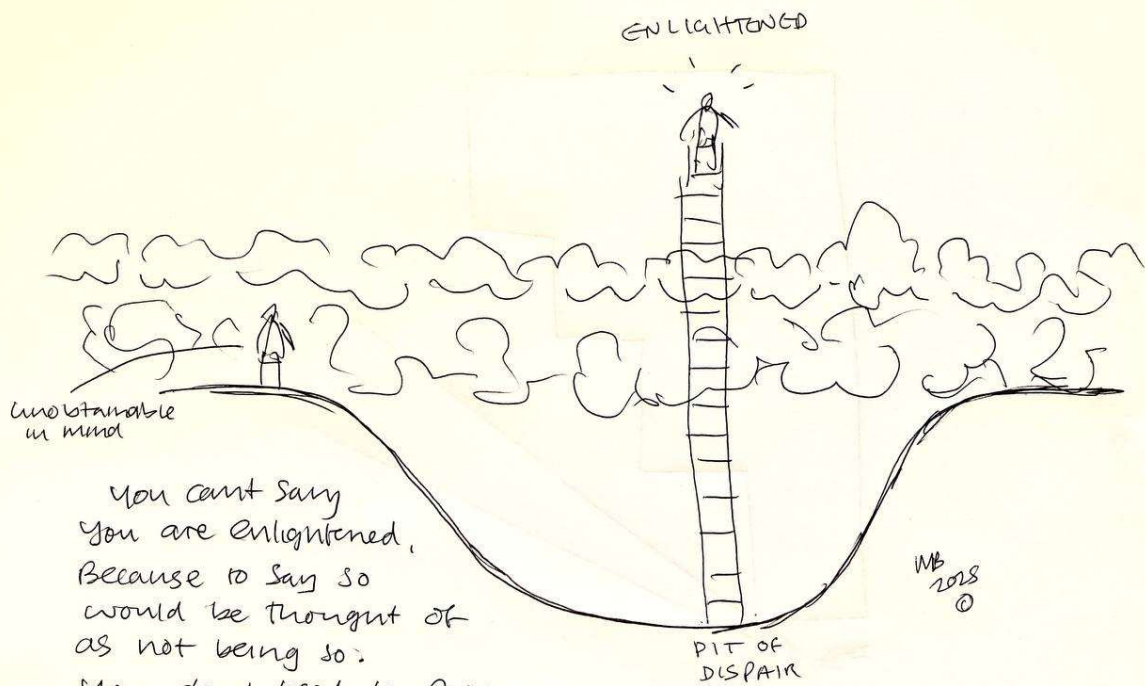 ENLIGHTENED
unobtainable
in mind
you cant say
you are enlightened,
Because to say so
would be thought of
as not being so.
MB
©
PIT OF
DISPAIR